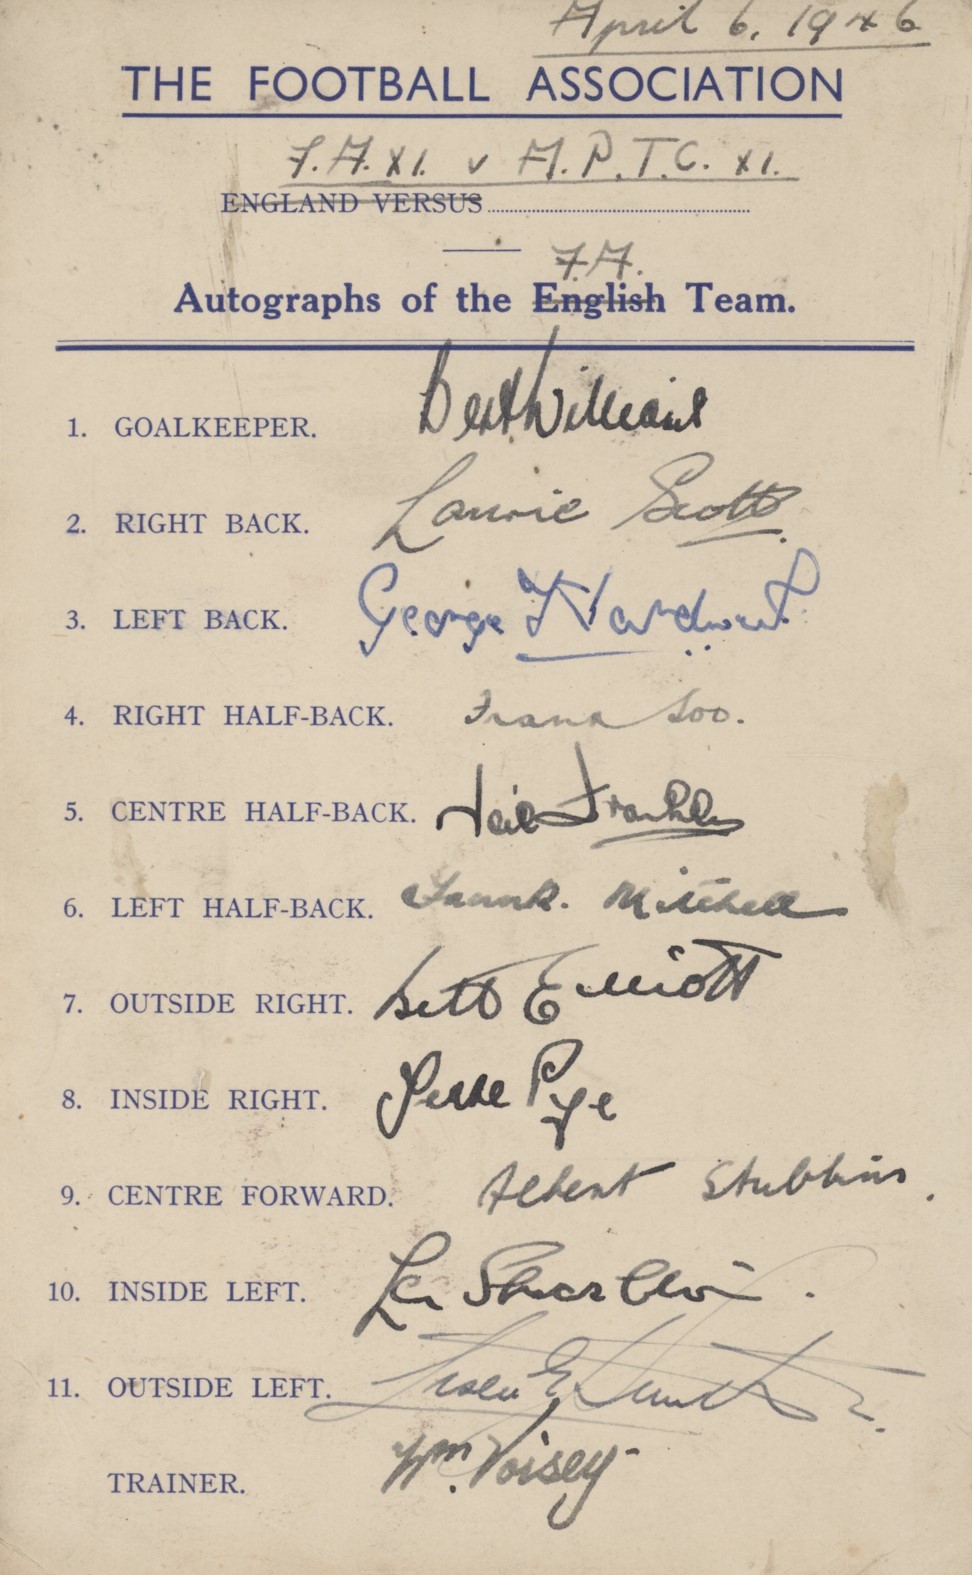 April 6, 1946
THE FOOTBALL ASSOCIATION
F.A. XI. v A.P.T.C. XI.
ENGLAND VERSUS
F.A.
Autographs of the English Team.
1. GOALKEEPER. Bert Williams
2. RIGHT BACK. Laurie Scott.
3. LEFT BACK. George Hardwick
4. RIGHT HALF-BACK. Frank Soo.
5. CENTRE HALF-BACK. Neil Franklin
6. LEFT HALF-BACK. Frank. Mitchell
7. OUTSIDE RIGHT. Elliott
8. INSIDE RIGHT. Jesse Pye
9. CENTRE FORWARD. Albert Stubbins.
10. INSIDE LEFT. Len Shackleton.
11. OUTSIDE LEFT. Leslie Smith
TRAINER. Wm. Voisey